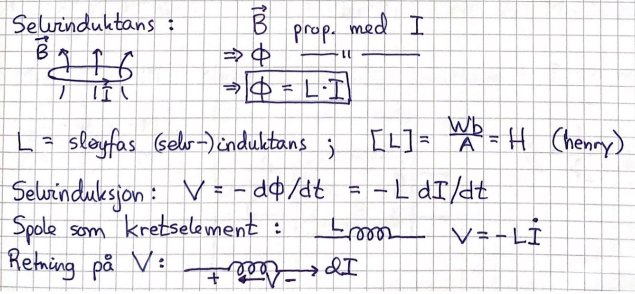 Selvinduktans : B⃗ prop. med I
B⃗ ⇒ ϕ —— " ——
I⃗ ⇒ ϕ = L·I
L = sløyfas (selv-)induktans ; [L] = Wb/A = H (henry)
Selvinduksjon : V = - dϕ/dt = - L dI/dt
Spole som kretselement : L V = - Lİ
Retning på V : + V - dI